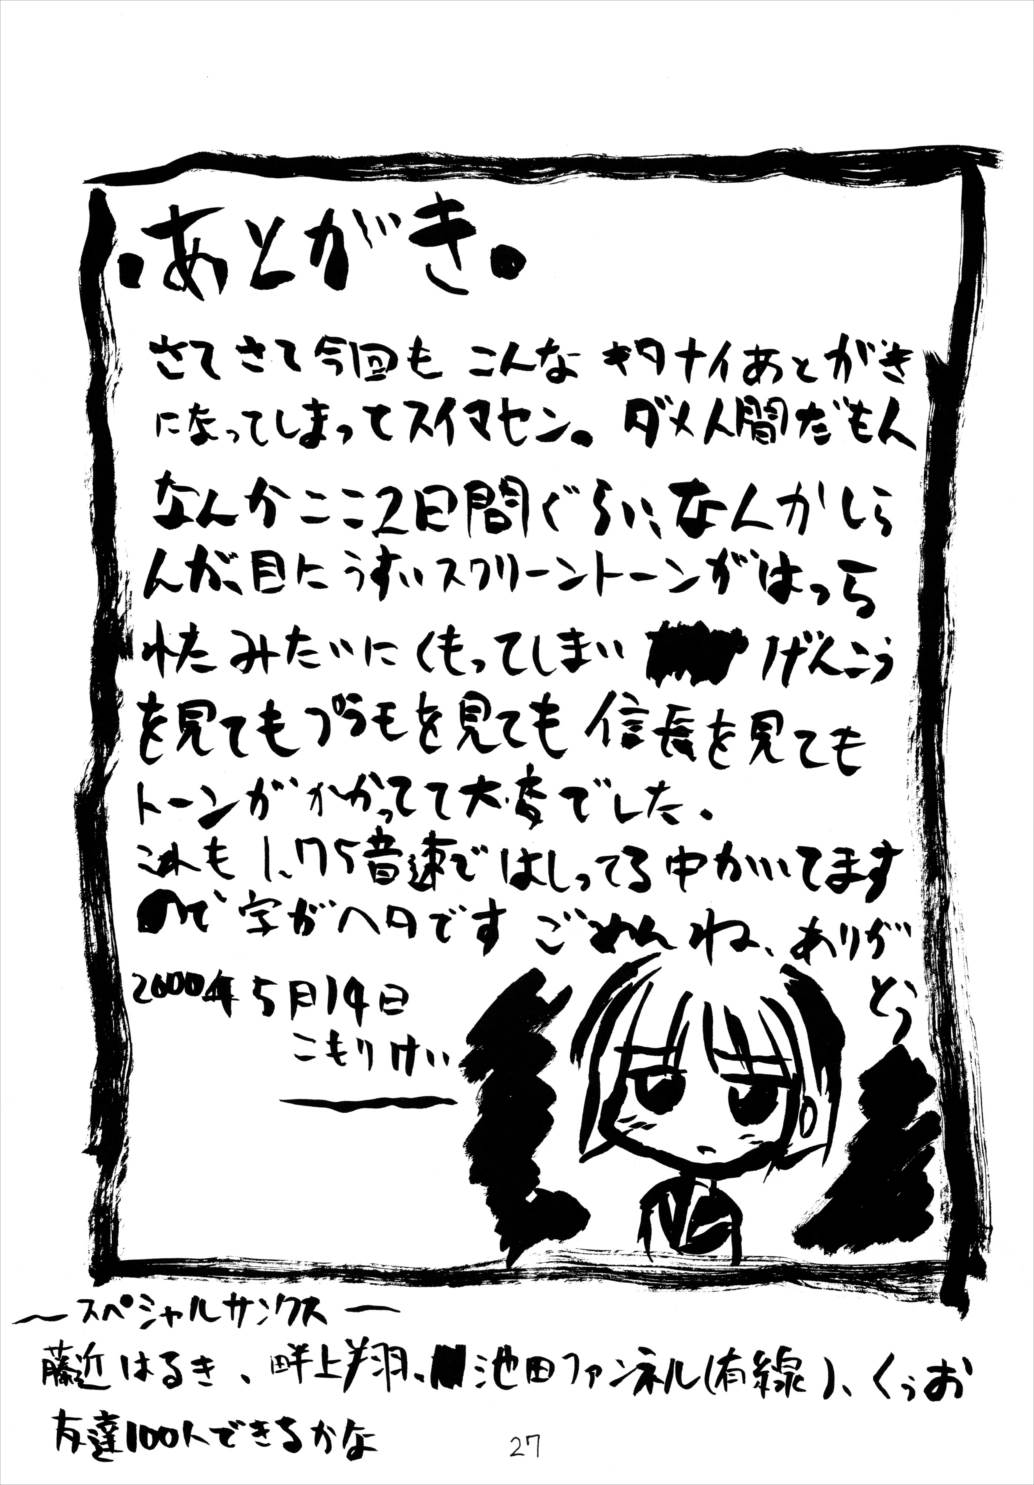 ・あとがき・
さてさて今回も こんな キタナイあとがき
になってしまってスイマセン。ダメ人間だもん
なんかここ2日間ぐらい、なんかしら
んが、目にうすいスクリーントーンがはっら
れたみたいにくもってしまい げんこう
を見てもプラモを見ても 信長を見ても
トーンがかかってて大変でした.
これも 1.75音速ではしってる中かいてます
ので字がヘタです ごめんね、ありが
とう
2000年5月14日
こもりけい
〜スペシャルサンクス〜
藤近はるき、畔上翔、池田ファンネル(有線)、くぅお
友達100人できるかな
27